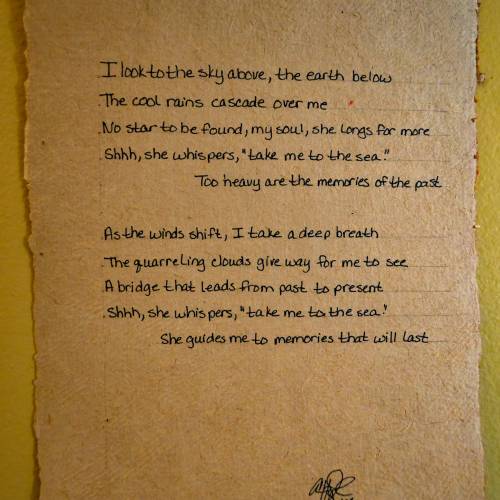 I look to the sky above, the earth below
The cool rains cascade over me
No star to be found, my soul, she longs for more
Shhh, she whispers, "take me to the sea."
Too heavy are the memories of the past
As the winds shift, I take a deep breath
The quarreling clouds give way for me to see
A bridge that leads from past to present
Shhh, she whispers, "take me to the sea."
She guides me to memories that will last